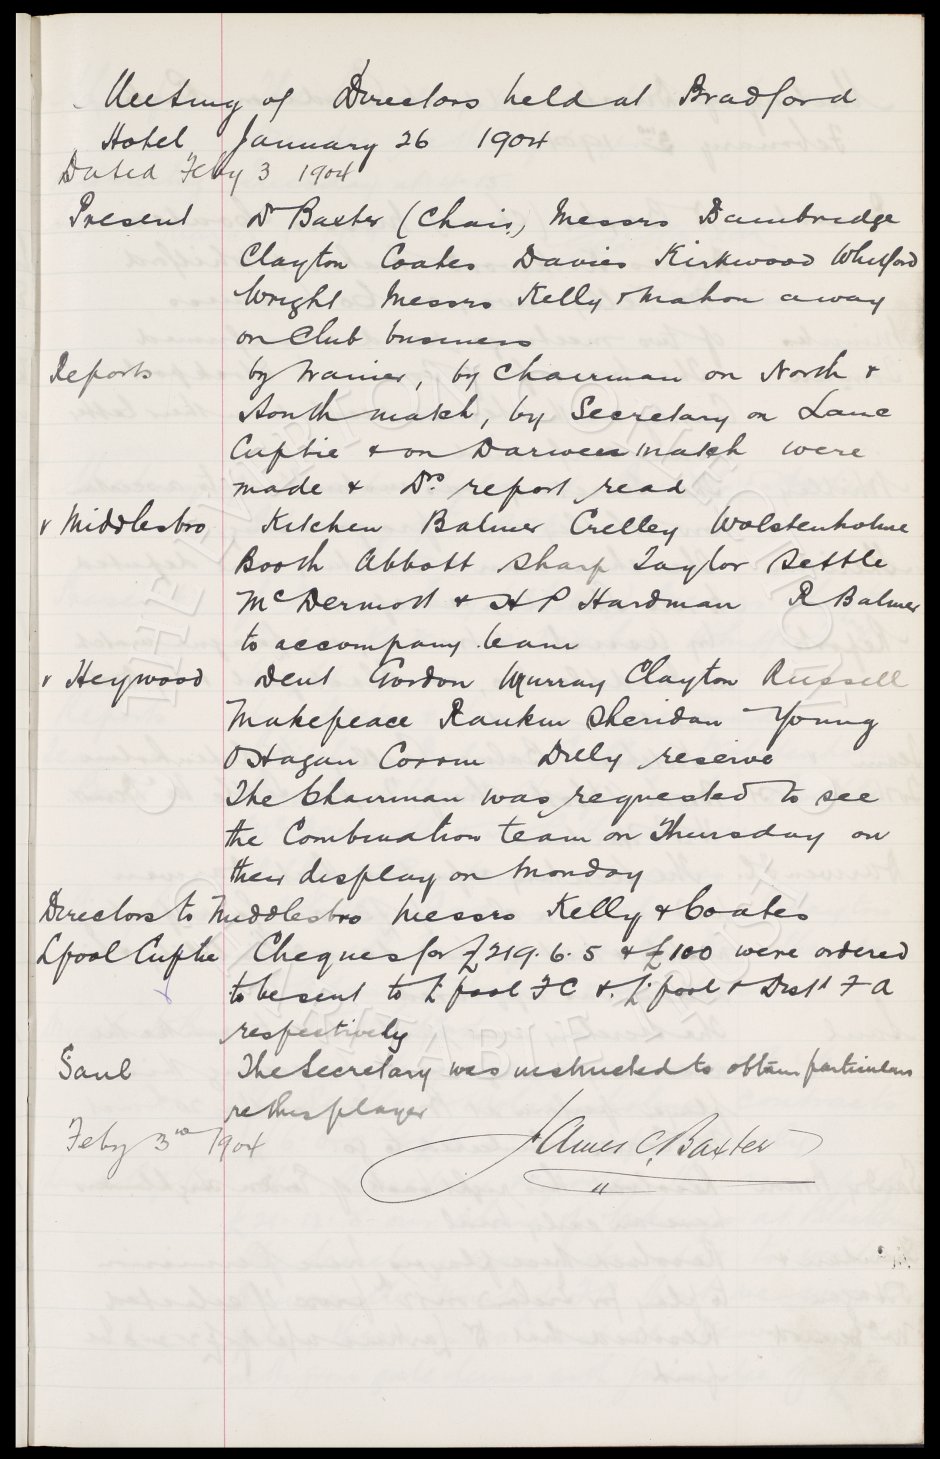 Meeting of Directors held at Bradford
Hotel January 26 1904
Dated Feby 3 1904
Present Dr Baxter (Chair,) Messrs Bainbridge
Clayton Coates Davies Kirkwood Whitford
Wright Messrs Kelly & Mahon away
on Club business
Reports by Trainer, by Chairman on North &
South match, by Secretary on Lanc
Cuptie & on Darwen match were
made & Drs report read
v Middlesbro Kitchen Balmer Crelley Wolstenholme
Booth Abbott Sharp Taylor Settle
McDermott & H P Hardman R Balmer
to accompany team
v Heywood Dent Gordon Murray Clayton Russell
Makepeace Rankin Sheridan Young
OHagan Corrin Dilly reserve
The Chairman was requested to see
the Combination team on Thursday on
their display on Monday
Directors to Middlesbro Messrs Kelly & Coates
Lpool Cuptie Cheques for £219.6.5 & £100 were ordered
to be sent to L'pool F C & L'pool & Dist F A
respectively
Saul The Secretary was instructed to obtain particulars
re this player
Feby 3rd 1904 James C. Baxter